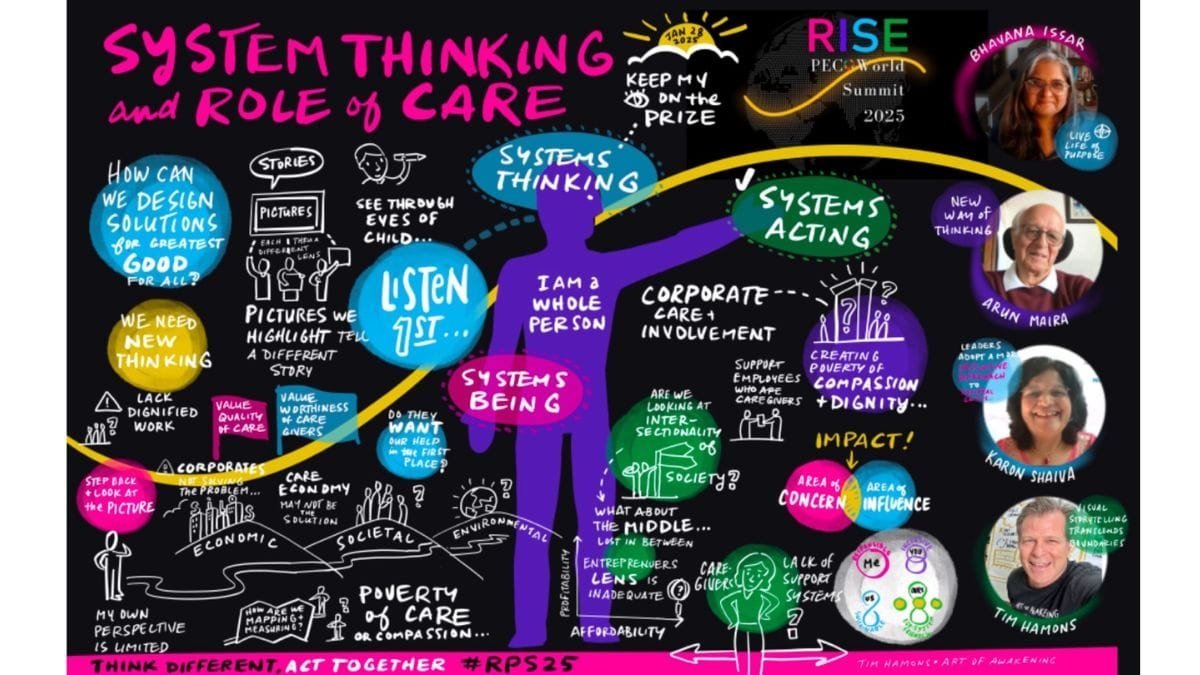 SYSTEM THINKING
and ROLE of CARE
JAN 28
2025
KEEP MY
ON the
PRIZE
RISE
PECC World
Summit
2025
BHAVANA ISSAR
LIVE
LIFE of
PURPOSE
HOW CAN
WE DESIGN
SOLUTIONS
for GREATEST
GOOD
FOR ALL?
STORIES
PICTURES
EACH THRU A
DIFFERENT
LENS
PICTURES WE
HIGHLIGHT TELL
A DIFFERENT
STORY
SEE THROUGH
EYES OF
CHILD...
LISTEN
1ST...
SYSTEMS
THINKING
SYSTEMS
ACTING
I AM a
WHOLE
PERSON
SYSTEMS
BEING
NEW
WAY of
THINKING
ARUN MAIRA
WE NEED
NEW
THINKING
LACK
DIGNIFIED
WORK
?
VALUE
QUALITY
of CARE
VALUE
WORTHINESS
OF CARE
GIVERS
DO THEY
WANT
OUR HELP
in the FIRST
PLACE?
CORPORATE
CARE +
INVOLVEMENT
? ?
CREATING
POVERTY OF
COMPASSION
+ DIGNITY...
SUPPORT
EMPLOYEES
WHO ARE
CAREGIVERS
ARE WE
LOOKING AT
INTER-
SECTIONALITY
of
SOCIETY?
LEADERS
ADOPT A MORE
KARON SHAIVA
IMPACT!
AREA of
CONCERN
AREA of
INFLUENCE
STEP BACK
+ LOOK AT
the PICTURE
CORPORATES
NOT SOLVING
THE PROBLEM...
CARE
ECONOMY
MAY NOT BE
THE
SOLUTION
?
ECONOMIC
SOCIETAL
ENVIRONMENTAL
WHAT ABOUT
THE MIDDLE...
LOST IN BETWEEN
ENTREPRENUERS
LENS IS
INADEQUATE
?
PROFITABILITY
AFFORDABILITY
CARE-
GIVERS
LACK of
SUPPORT
SYSTEMS
?
RESPONSIBLE
ME
YOU
US
OURS
VISUAL
STORYTELLING
TRANSCENDS
BOUNDARIES
TIM HAMONS
MY OWN
PERSPECTIVE
IS LIMITED
HOW ARE WE
MAPPING +
MEASURING?
?
POVERTY
of CARE
OR COMPASSION...
THINK DIFFERENT, ACT TOGETHER #RPS25
TIM HAMONS * ART OF AWAKENING